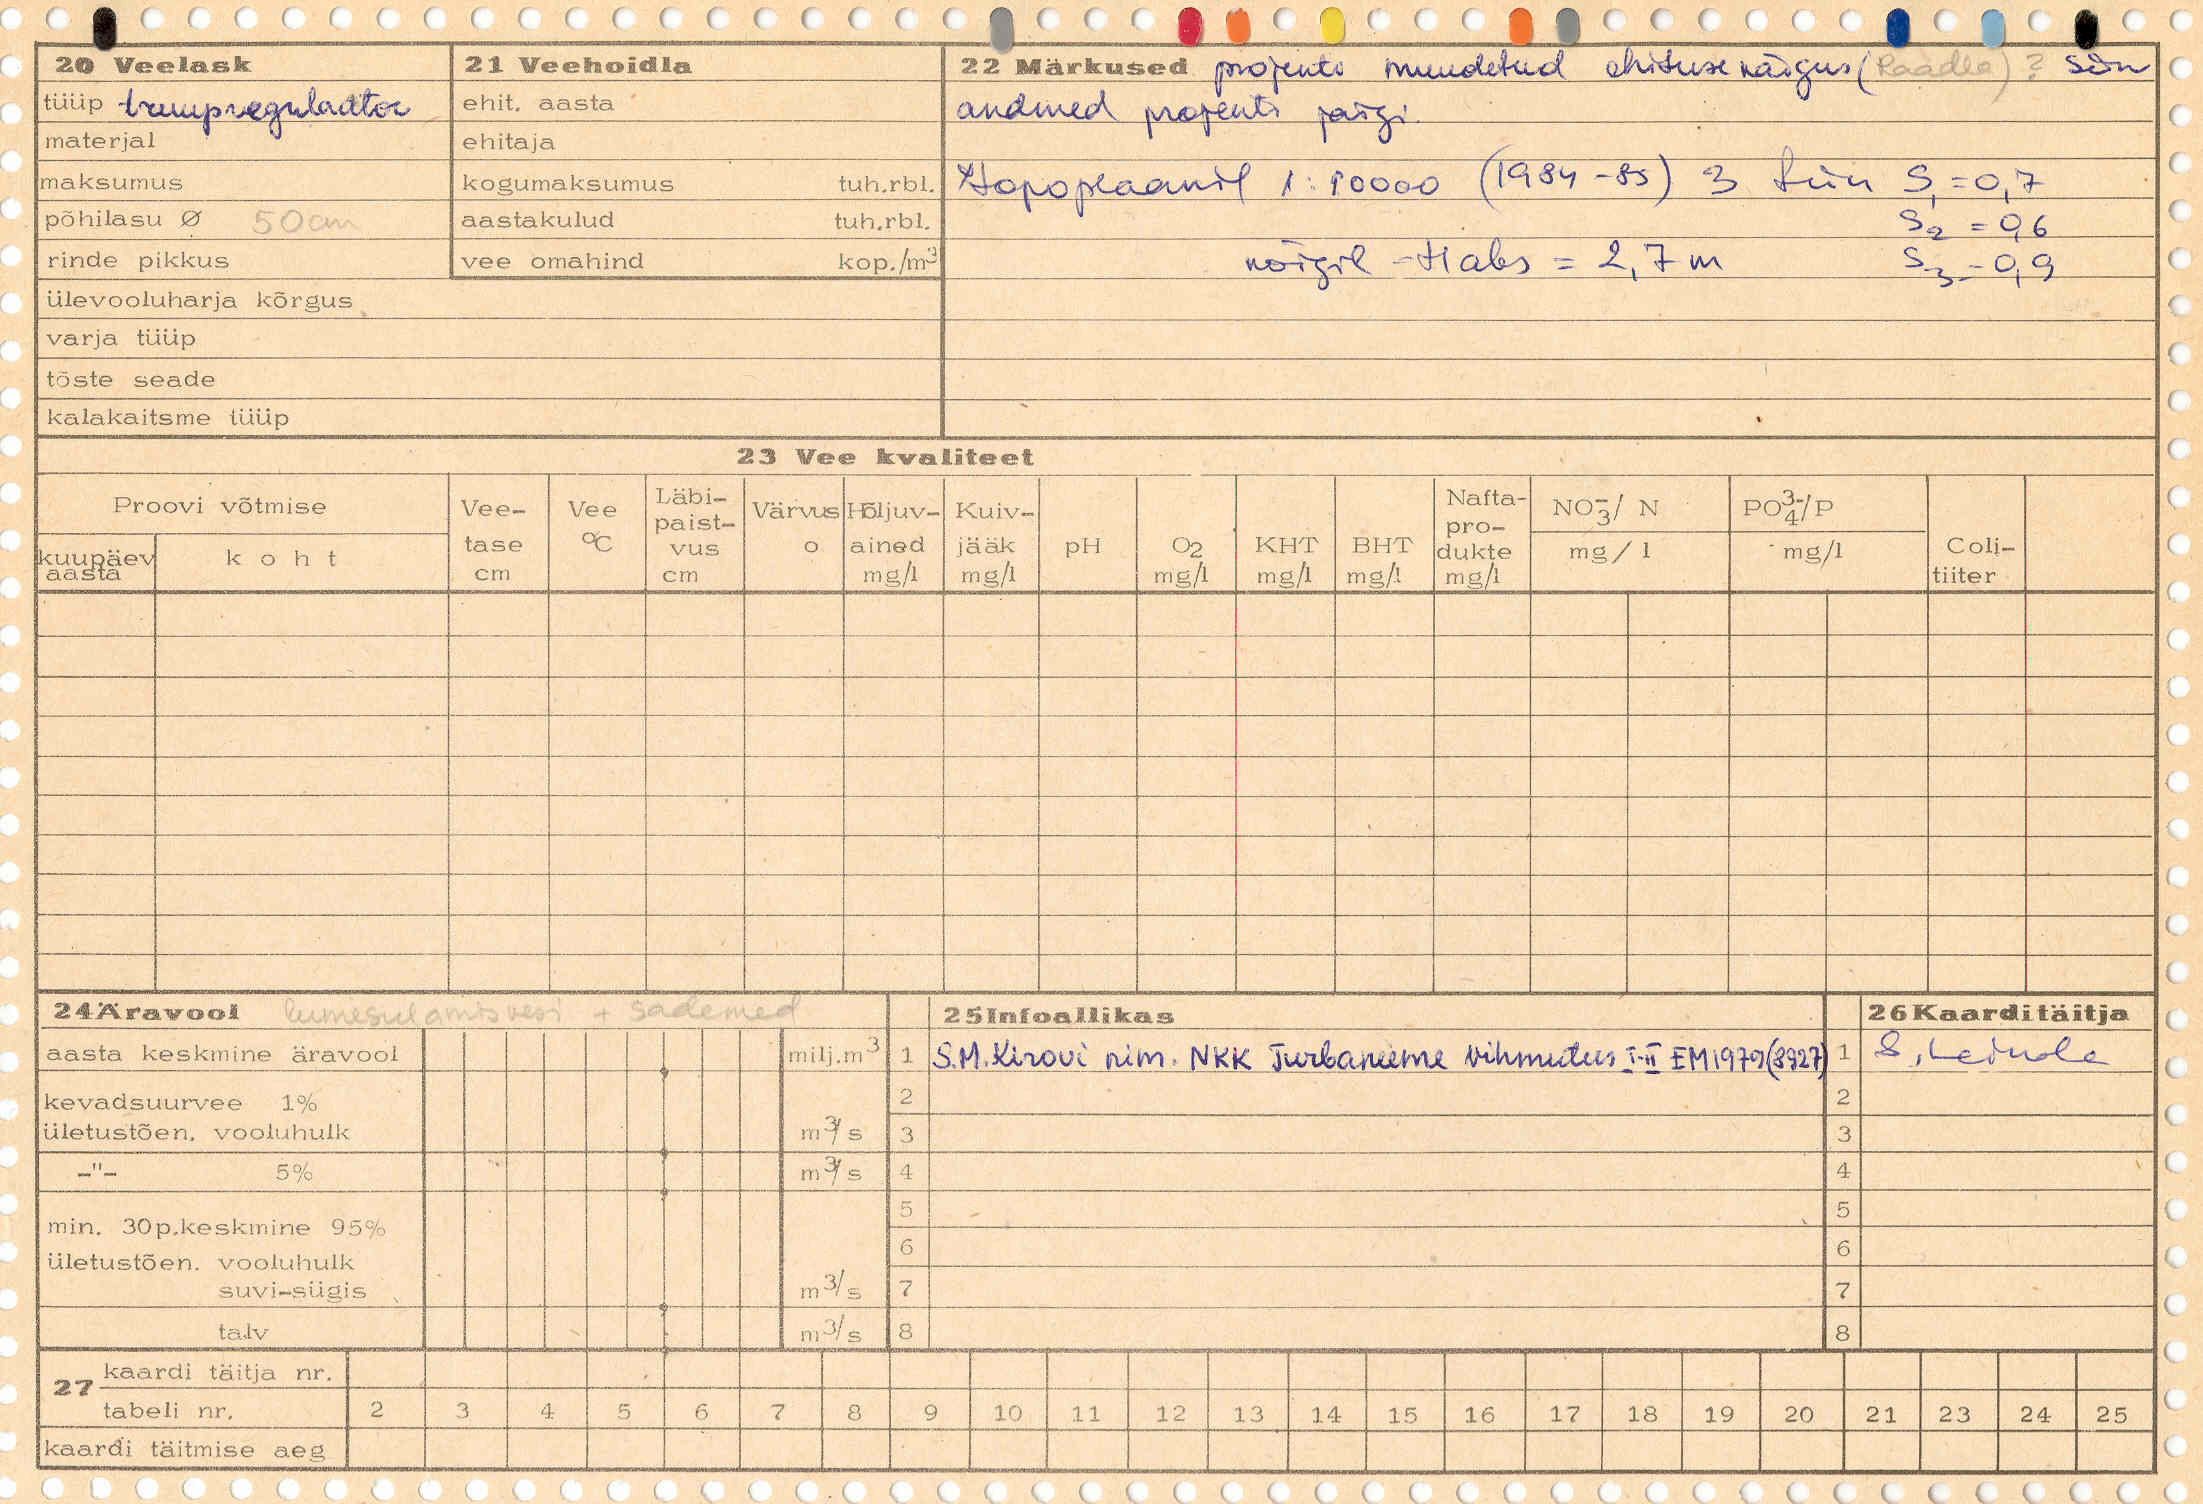 20 Veelask
tüüp truupregulaator
materjal
maksumus
põhilasu Ø 50cm
rinde pikkus
ülevooluharja kõrgus
varja tüüp
tõste seade
kalakaitsme tüüp
21 Veehoidla
ehit. aasta
ehitaja
kogumaksumus tuh.rbl.
aastakulud tuh.rbl.
vee omahind kop./m³
22 Märkused projekti muudetud ehituse käigus (Raadla)? siin
andmed projekti järgi.
Topoplaanil 1:10000 (1984-85) 3 tiiki S₁=0,7
S₂ = 0,6
kõigil - Habs = 2,7 m S₃ = 0,9
23 Vee kvaliteet
Proovi võtmise
kuupäev aasta
koht
Vee-tase cm
Vee °C
Läbi-paist-vus cm
Värvus o
Hõljuv-ained mg/l
Kuiv-jääk mg/l
pH
O₂ mg/l
KHT mg/l
BHT mg/l
Nafta-pro-dukte mg/l
NO₃⁻/ N mg/l
PO₄³⁻/P mg/l
Coli-tiiter
24 Äravool lumesulamisvesi + sademed
aasta keskmine äravool milj.m³
kevadsuurvee 1%
ületustõen. vooluhulk m³/s
-"- 5% m³/s
min. 30p.keskmine 95%
ületustõen. vooluhulk
suvi-sügis m³/s
talv m³/s
25 Infoallikas
1 S.M.Kirovi nim. NKK Turbaneeme vihmutus I-II EM 1979 (8927)
2
3
4
5
6
7
8
26 Kaarditäitja
1 S.
2
3
4
5
6
7
8
27 kaardi täitja nr.
tabeli nr. 2 3 4 5 6 7 8 9 10 11 12 13 14 15 16 17 18 19 20 21 23 24 25
kaardi täitmise aeg